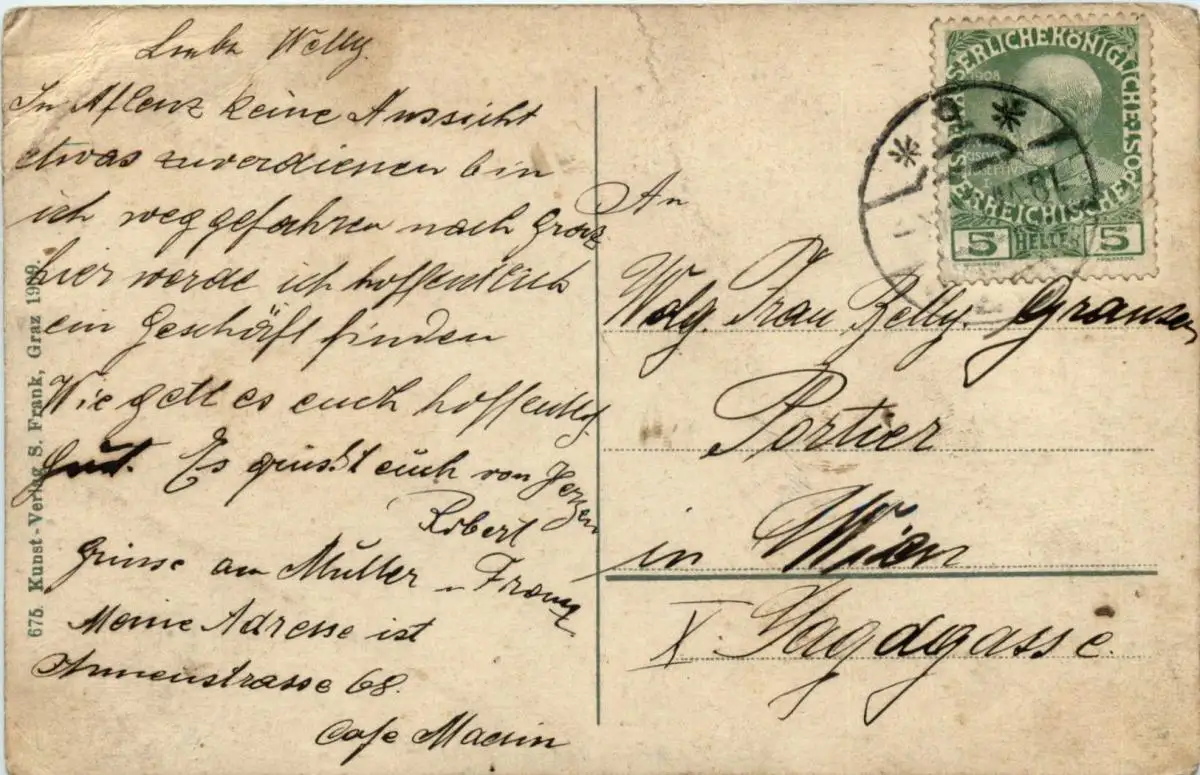 Liebe Welly.
In Aflenz keine Aussicht
etwas zuverdienen bin
ich weggefahren nach Graz
hier werde ich hoffentlich
ein Geschäft finden
Wie gett es euch hoffentlig
Gut. Es grüsst euch von Herzen
Robert
Grüsse an Müller u Franz
Meine Adresse ist
Annenstrasse 68.
Cafe
An
Wolg. Frau Zelly.
Portier
in Wien
X. Jagdgasse.
675. Kunst-Verlag S. Frank, Graz 1909.
KAISERLICHE KÖNIGLICHE ÖSTERREICHISCHE POST
1908
5 HELLER 5